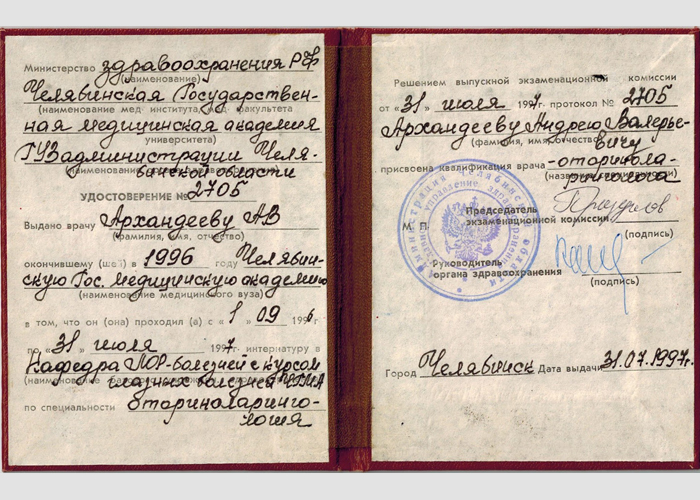 Министерство здравоохранения РФ
(наименование)
Челябинская Государствен-
(наименование мед. института, мед. факультета
ная медицинская академия
университета)
ГУЗ администрации Челя-
бинской области
УДОСТОВЕРЕНИЕ № 2705
Выдано врачу Архандееву АВ
(фамилия, имя, отчество)
окончившему (шей) в 1996 году Челябин-
скую Гос. медицинскую академию
(наименование медицинского вуза)
в том, что он (она) проходил (а) с « 1 » 09 1996 г
по « 31 » июля 1997 г. интернатуру в
Кафедра ЛОР-болезней с курсом
глазных болезней
по специальности оториноларинго-
логия
Решением выпускной экзаменационной комиссии
от « 31 » июля 1997г. протокол № 2705
Архандееву Андрею Валерье-
вичу
(фамилия, имя, отчество)
присвоена квалификация врача -оторинола-
ринголога
Председатель
М. П. экзаменационной комиссии
(подпись)
Руководитель
органа здравоохранения
(подпись)
Город Челябинск Дата выдачи 31.07.1997г.